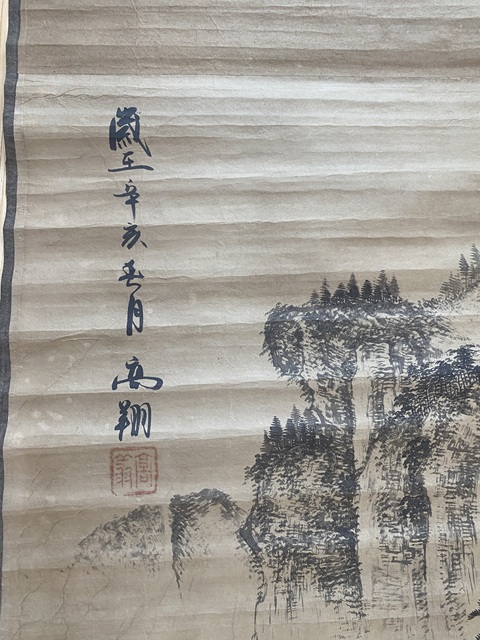 歲在辛亥春月
高翔
高